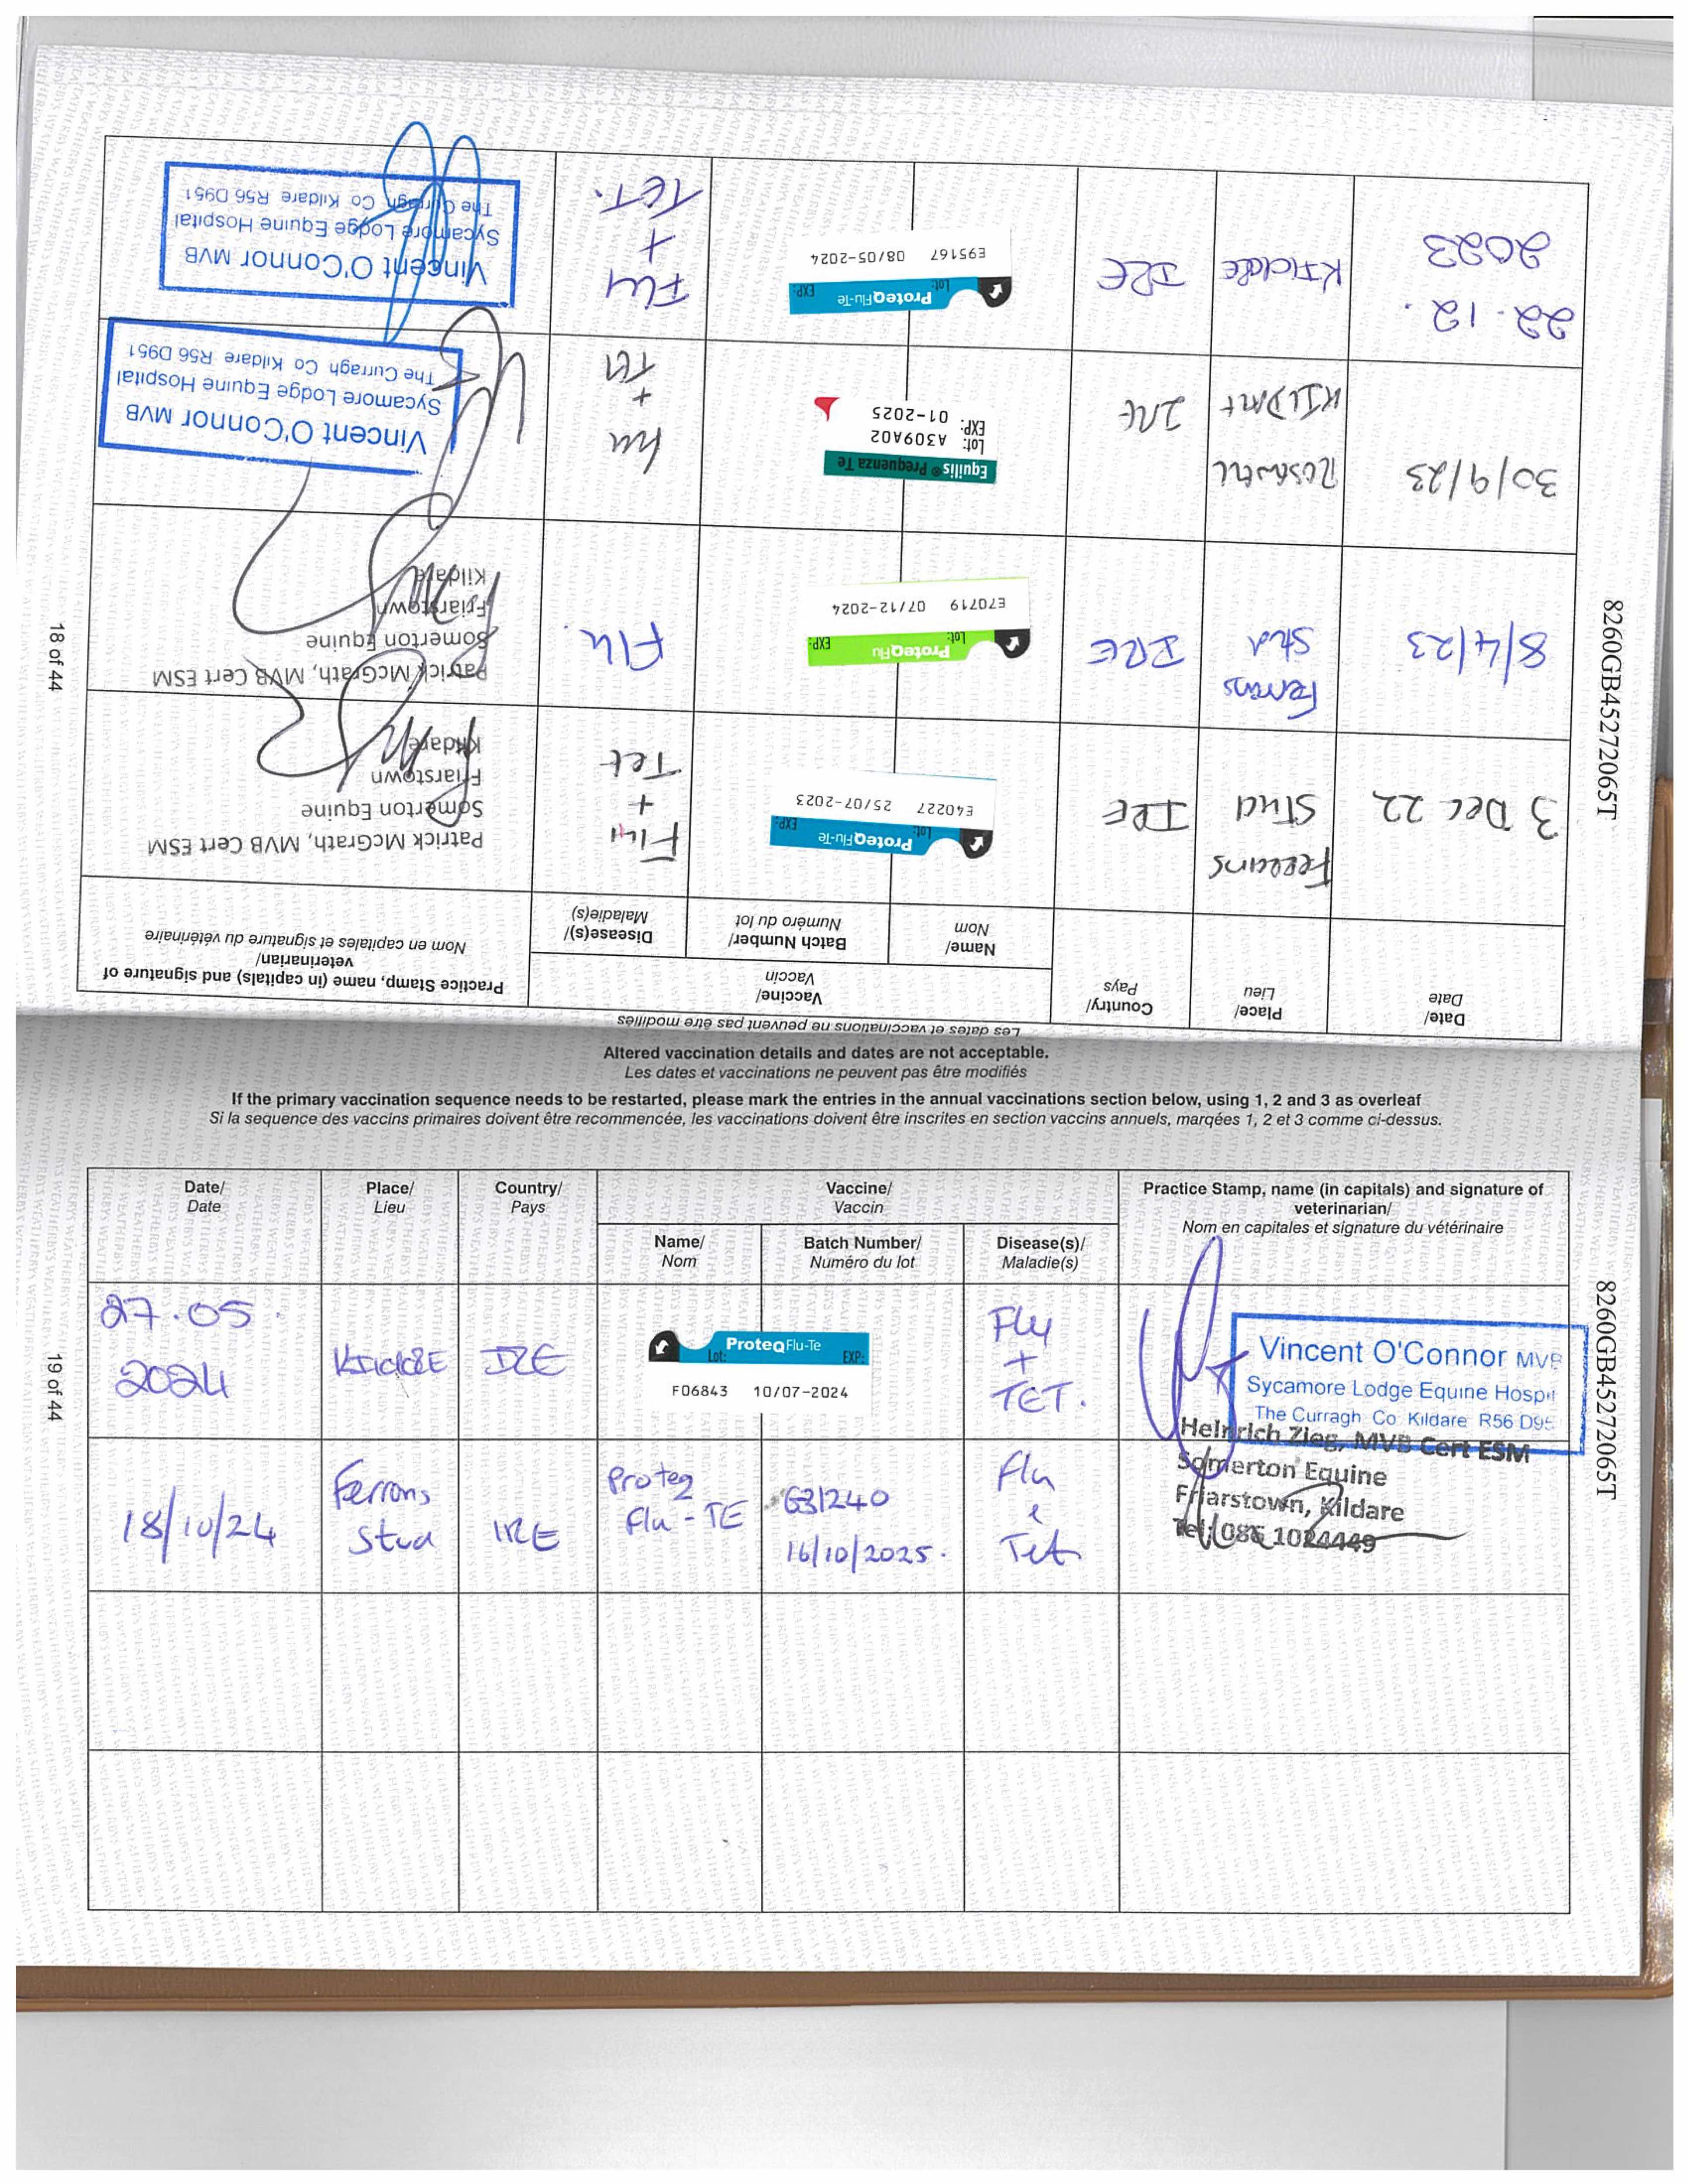 8260GB45272065T
18 of 44
Les dates et vaccinations ne peuvent pas être modifiés
Date/
Date
Place/
Lieu
Country/
Pays
Vaccine/
Vaccin
Name/
Nom
Batch Number/
Numéro du lot
Disease(s)/
Maladie(s)
Practice Stamp, name (in capitals) and signature of
veterinarian/
Nom en capitales et signature du vétérinaire
3 Dec 22
Stud
IRE
ProteqFlu-Te
Lot: EXP:
E40227 25/07-2023
Flu
+
Tet
Patrick McGrath, MVB Cert ESM
Somerton Equine
Friarstown
Kildare
8/4/23
Ferrans
Stud
IRE
ProteqFlu
Lot: EXP:
E70719 07/12-2024
Flu.
Patrick McGrath, MVB Cert ESM
Somerton Equine
Friarstown
Kildare
30/9/23
KILDARE
IRE
Equilis® Prequenza Te
Lot: A309A02
EXP: 01-2025
Flu
+
Tet
Vincent O'Connor MVB
Sycamore Lodge Equine Hospital
The Curragh Co Kildare R56 D951
22.12.
2023
KILDARE
IRE
ProteqFlu-Te
Lot: EXP:
E95167 08/05-2024
Flu
+
TET.
Vincent O'Connor MVB
Sycamore Lodge Equine Hospital
The Curragh Co Kildare R56 D951
Altered vaccination details and dates are not acceptable.
Les dates et vaccinations ne peuvent pas être modifiés
If the primary vaccination sequence needs to be restarted, please mark the entries in the annual vaccinations section below, using 1, 2 and 3 as overleaf
Si la sequence des vaccins primaires doivent être recommencée, les vaccinations doivent être inscrites en section vaccins annuels, marqées 1, 2 et 3 comme ci-dessus.
Date/
Date
Place/
Lieu
Country/
Pays
Vaccine/
Vaccin
Name/
Nom
Batch Number/
Numéro du lot
Disease(s)/
Maladie(s)
Practice Stamp, name (in capitals) and signature of
veterinarian/
Nom en capitales et signature du vétérinaire
27.05.
2024
KILDARE
IRE
ProteqFlu-Te
Lot: EXP:
F06843 10/07-2024
Flu
+
TET.
Vincent O'Connor MVB
Sycamore Lodge Equine Hospit
The Curragh Co Kildare R56 D95
18/10/24
Ferrans
Stud
IRE
Proteq
Flu-TE
G31240
16/10/2025.
Flu
&
Tet
Heinrich Zieg, MVB Cert ESM
Somerton Equine
Friarstown, Kildare
Tel: 086 1024449
8260GB45272065T
19 of 44